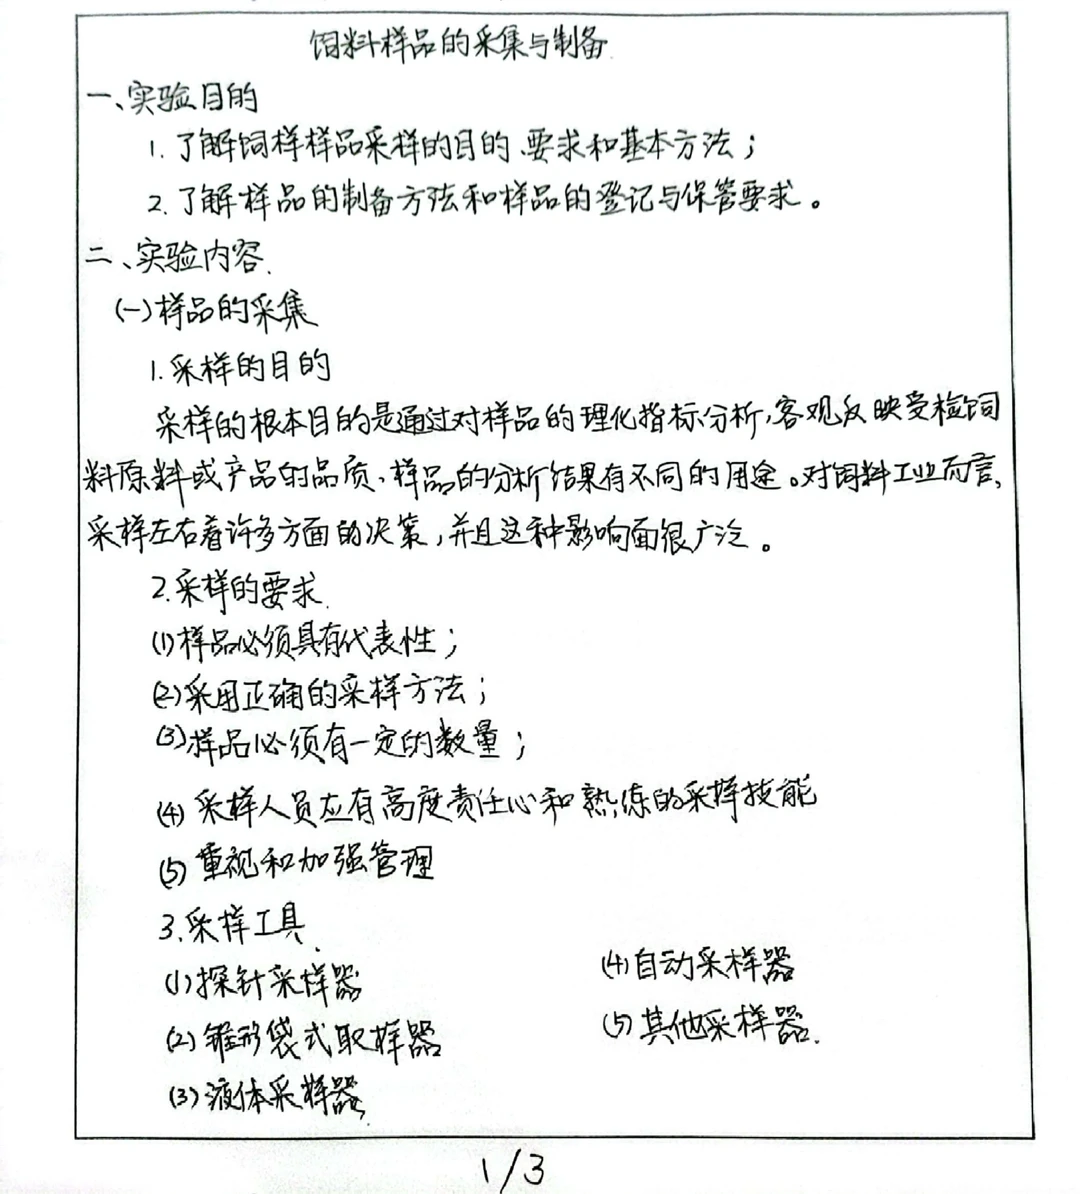 饲料样品的采集与制备.
一、实验目的
1. 了解饲样样品采样的目的、要求和基本方法；
2. 了解样品的制备方法和样品的登记与保管要求。
二、实验内容.
(一)样品的采集
1. 采样的目的
采样的根本目的是通过对样品的理化指标分析,客观反映受检饲
料原料或产品的品质、样品的分析结果有不同的用途。对饲料工业而言,
采样左右着许多方面的决策,并且这种影响面很广泛。
2. 采样的要求.
(1)样品必须具有代表性；
(2)采用正确的采样方法；
(3)样品必须有一定的数量；
(4) 采样人员应有高度责任心和熟练的采样技能
(5) 重视和加强管理
3. 采样工具.
(1)探针采样器
(2) 锥形袋式取样器
(3) 液体采样器.
(4) 自动采样器
(5) 其他采样器.
1/3